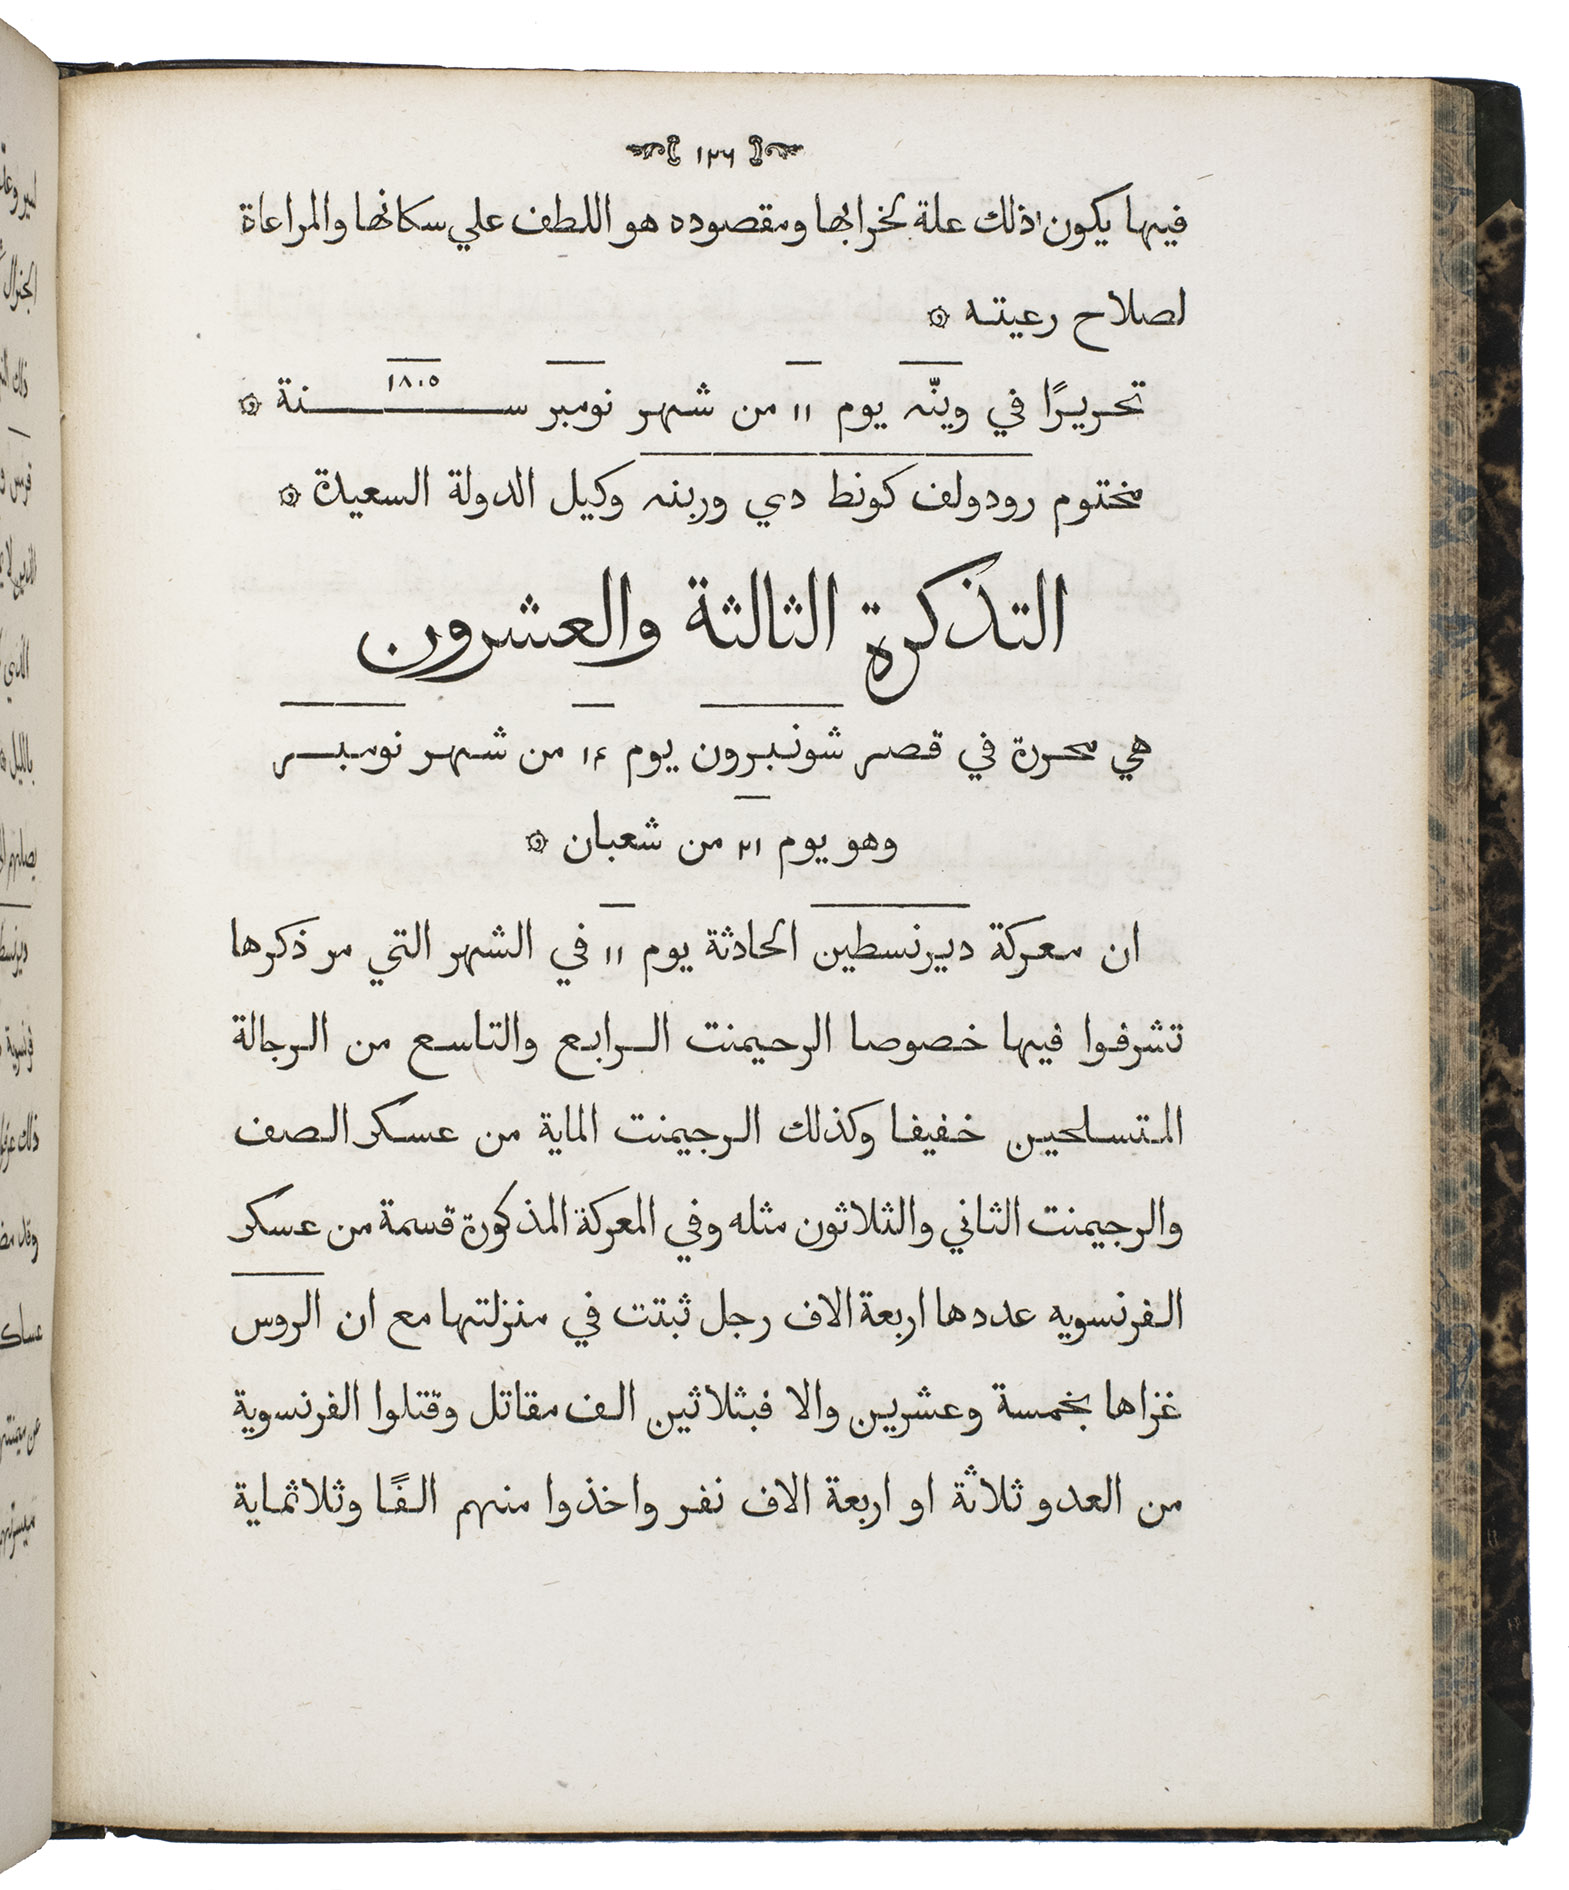 ١٣٦
فيها يكون ذلك علة لخرابها ومقصوده هو اللطف علي سكانها والمراعاة
لصلاح رعيته
تحريرًا في وينّه يوم ١١ من شهر نومبر سنة ١٨٠٥
مختوم رودولف كونط دي وربنه وكيل الدولة السعيدة
التذكرة الثالثة والعشرون
هي محررة في قصر شونبرون يوم ١٤ من شهر نومبر
وهو يوم ٢١ من شعبان
ان معركة ديرنسطين الحادثة يوم ١١ في الشهر التي مر ذكرها
تشرفوا فيها خصوصا الرحيمنت الرابع والتاسع من الرجالة
المتسلحين خفيفا وكذلك الرجيمنت الماية من عسكر الصف
والرجيمنت الثاني والثلاثون مثله وفي المعركة المذكورة قسمة من عسكر
الفرنسويه عددها اربعة الاف رجل ثبتت في منزلتها مع ان الروس
غزاها بخمسة وعشرين والا فبثلاثين الف مقاتل وقتلوا الفرنسوية
من العدو ثلاثة او اربعة الاف نفر واخذوا منهم الفًا وثلاثماية